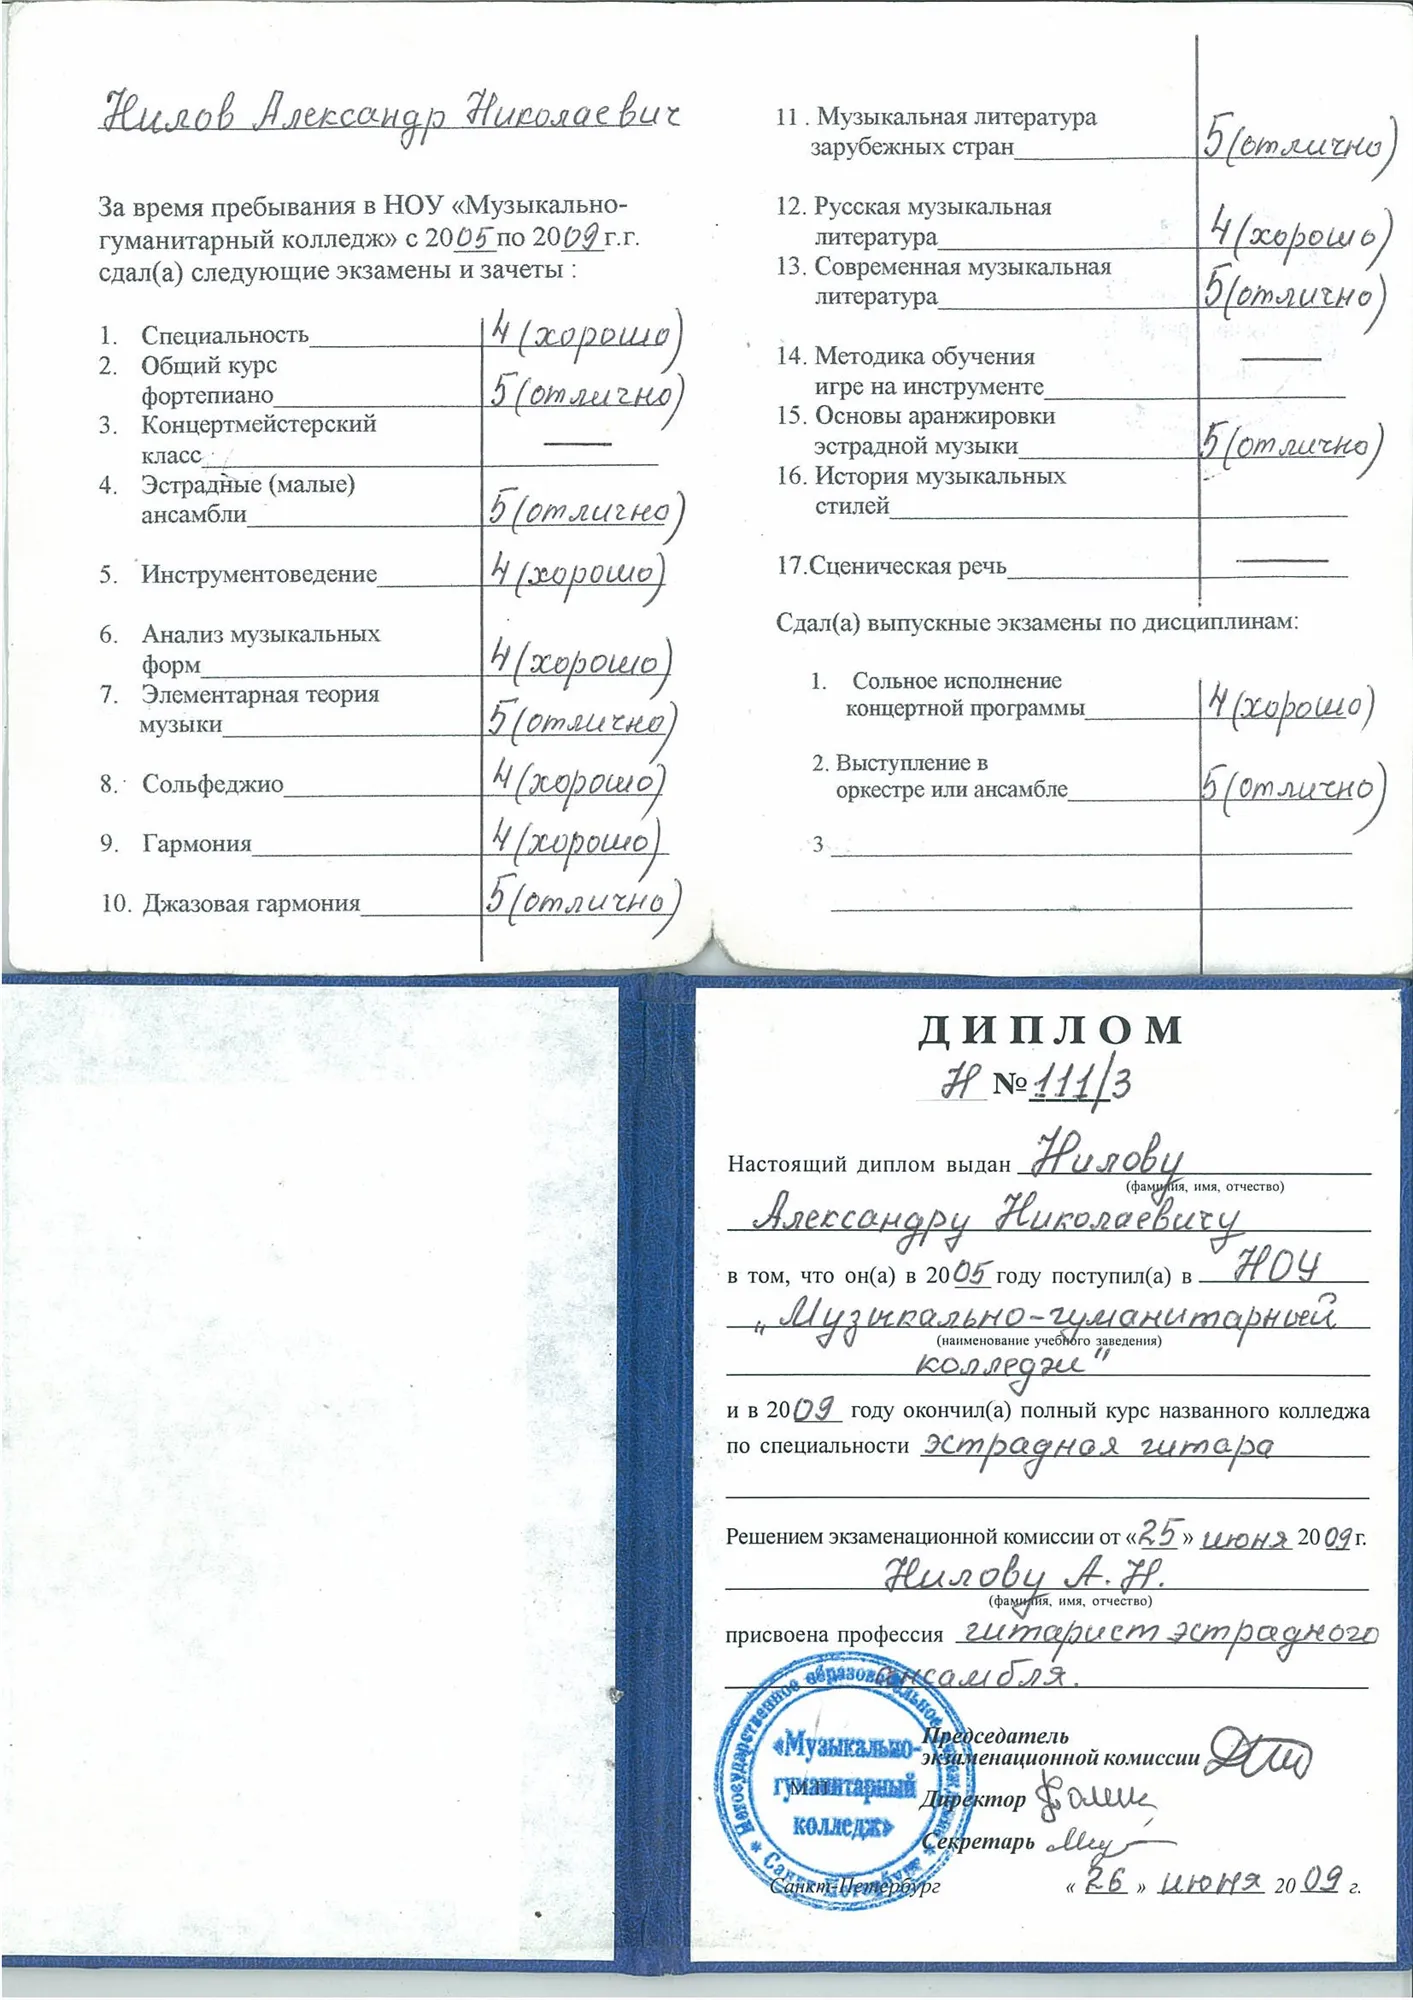 Нилов Александр Николаевич
За время пребывания в НОУ «Музыкально-
гуманитарный колледж» с 2005 по 2009 г.г.
сдал(а) следующие экзамены и зачеты :
1. Специальность 4 (хорошо)
2. Общий курс
фортепиано 5 (отлично)
3. Концертмейстерский
класс —
4. Эстрадные (малые)
ансамбли 5 (отлично)
5. Инструментоведение 4 (хорошо)
6. Анализ музыкальных
форм 4 (хорошо)
7. Элементарная теория
музыки 5 (отлично)
8. Сольфеджио 4 (хорошо)
9. Гармония 4 (хорошо)
10. Джазовая гармония 5 (отлично)
11 . Музыкальная литература
зарубежных стран 5 (отлично)
12. Русская музыкальная
литература 4 (хорошо)
13. Современная музыкальная
литература 5 (отлично)
14. Методика обучения —
игре на инструменте
15. Основы аранжировки
эстрадной музыки 5 (отлично)
16. История музыкальных
стилей
17.Сценическая речь —
Сдал(а) выпускные экзамены по дисциплинам:
1. Сольное исполнение
концертной программы 4 (хорошо)
2. Выступление в
оркестре или ансамбле 5 (отлично)
3
ДИПЛОМ
Н № 111/3
Настоящий диплом выдан Нилову
(фамилия, имя, отчество)
Александру Николаевичу
в том, что он(а) в 2005 году поступил(а) в НОУ
„Музыкально-гуманитарный
(наименование учебного заведения)
колледж"
и в 2009 году окончил(а) полный курс названного колледжа
по специальности эстрадная гитара
Решением экзаменационной комиссии от «25» июня 2009 г.
Нилову А. Н.
(фамилия, имя, отчество)
присвоена профессия гитарист эстрадного
ансамбля.
Председатель
экзаменационной комиссии
Директор
Секретарь
М.П.
Санкт-Петербург « 26 » июня 2009 г.
Негосударственное образовательное учреждение
«Музыкально-
гуманитарный
колледж»
* Санкт-Петербург *